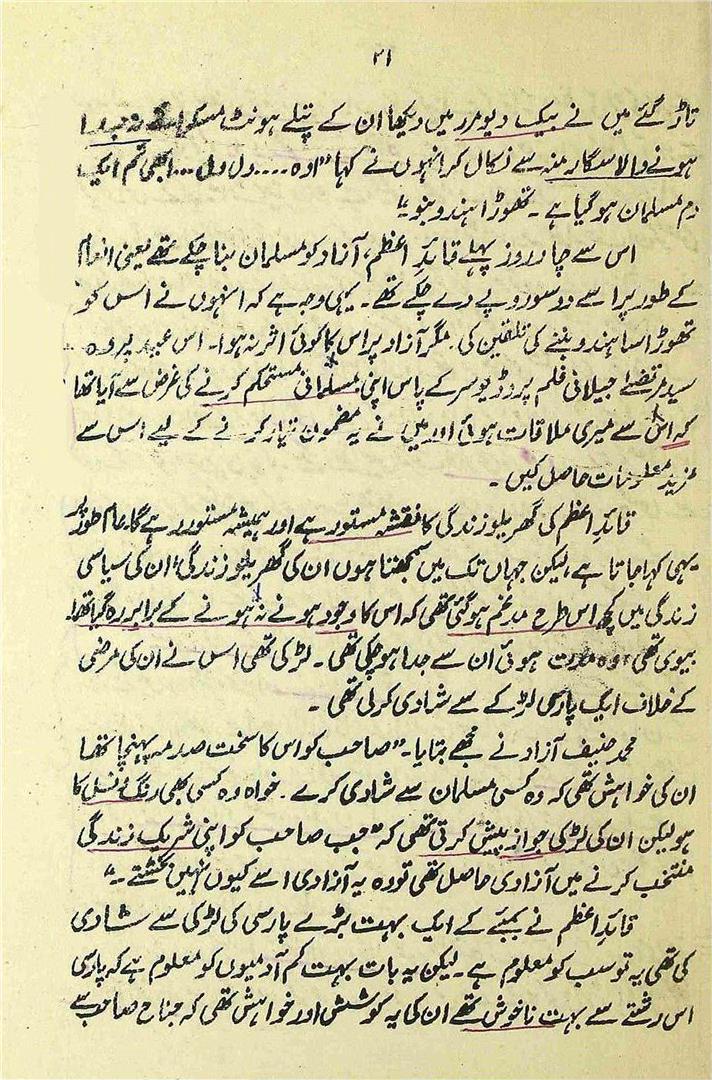 ۳۱
تاڑ گئے میں نے بیک ویو مرر میں دیکھا ان کے پتلے ہونٹ
ہونے والا سگار منہ سے نکال کر انہوں نے کہا "اوہ .... ول ول ... ابھی تم ایک
دم مسلمان ہو گیا ہے۔ تھوڑا ہندو بنو۔"
اس سے چار روز پہلے قائدِ اعظم، آزاد کو مسلمان بنا چکے تھے یعنی انعام
کے طور پر اسے دو سو روپے دے چکے تھے۔ یہی وجہ ہے کہ انہوں نے اس کو
تھوڑا سا ہندو بننے کی تلقین کی۔ مگر آزاد پر اس کا کوئی اثر نہ ہوا۔ اس عید پر وہ
سید مرتضیٰ جیلانی فلم پروڈیوسر کے پاس اپنی مسلمانی مستحکم کرنے کی غرض سے آیا تھا
کہ اس سے میری ملاقات ہوئی اور میں نے یہ مضمون تیار کرنے کے لیے اس سے
مزید معلومات حاصل کیں۔
قائدِ اعظم کی گھریلو زندگی کا نقشہ مستور ہے اور ہمیشہ مستور رہے گا۔ عام طور پر
یہی کہا جاتا ہے، لیکن جہاں تک میں سمجھتا ہوں ان کی گھریلو زندگی، ان کی سیاسی
زندگی میں کچھ اس طرح مدغم ہو گئی تھی کہ اس کا وجود ہونے نہ ہونے کے برابر رہ گیا تھا۔
بیوی تھی، وہ مدت ہوئی ان سے جدا ہو چکی تھی۔ لڑکی تھی اس نے ان کی مرضی
کے خلاف ایک پارسی لڑکے سے شادی کر لی تھی۔
محمد حنیف آزاد نے مجھے بتایا۔ "صاحب کو اس کا سخت صدمہ پہنچا تھا
ان کی خواہش تھی کہ وہ کسی مسلمان سے شادی کرے۔ خواہ وہ کسی بھی رنگ و نسل کا
ہو لیکن ان کی لڑکی جواز پیش کرتی تھی کہ "جب صاحب کو اپنی شریکِ زندگی
منتخب کرنے میں آزادی حاصل تھی تو وہ یہ آزادی اسے کیوں نہیں بخشتے۔"
قائدِ اعظم نے بمبئے کے ایک بہت بڑے پارسی کی لڑکی سے شادی
کی تھی یہ تو سب کو معلوم ہے۔ لیکن یہ بات بہت کم آدمیوں کو معلوم ہے کہ پارسی
اس رشتے سے بہت ناخوش تھے ان کی یہ کوشش اور خواہش تھی کہ جناح صاحب سے